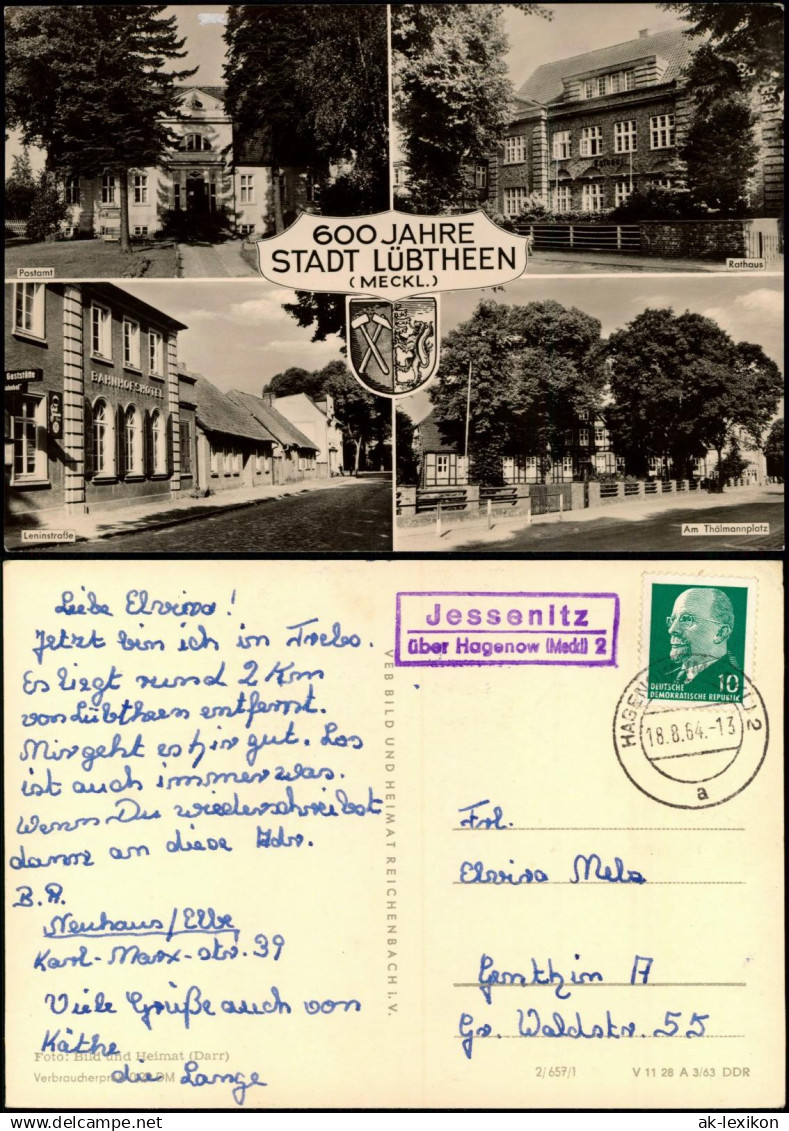 600 JAHRE
STADT LÜBTHEEN
(MECKL.)
Postamt
Rathaus
Rathaus
Gaststätte
BAHNHOFSHOTEL
Leninstraße
Am Thälmannplatz
Liebe Elvira!
Jetzt bin ich in Trebs.
Es liegt rund 2 Km
von Lübtheen entfernt.
Mir geht es hir gut. Los
ist auch immer was.
Wenn Du wiederschreibst
dann an diese Adr.
B. A.
Neuhaus/Elbe
Karl-Marx-str. 39
Viele Grüße auch von
Käthe
die Lange
Foto: Bild und Heimat (Darr)
Verbraucherpreis DM
VEB BILD UND HEIMAT REICHENBACH i. V.
Jessenitz
über Hagenow (Meckl) 2
10
DEUTSCHE
DEMOKRATISCHE REPUBLIK
HAGENOW 2
18.8.64.-13
a
Frl.
Elvira
Genthin A
Gr. Waldstr. 55
2/657/1
V 11 28 A 3/63 DDR
ansichtskarten-lexikon.de
ak-lexikon